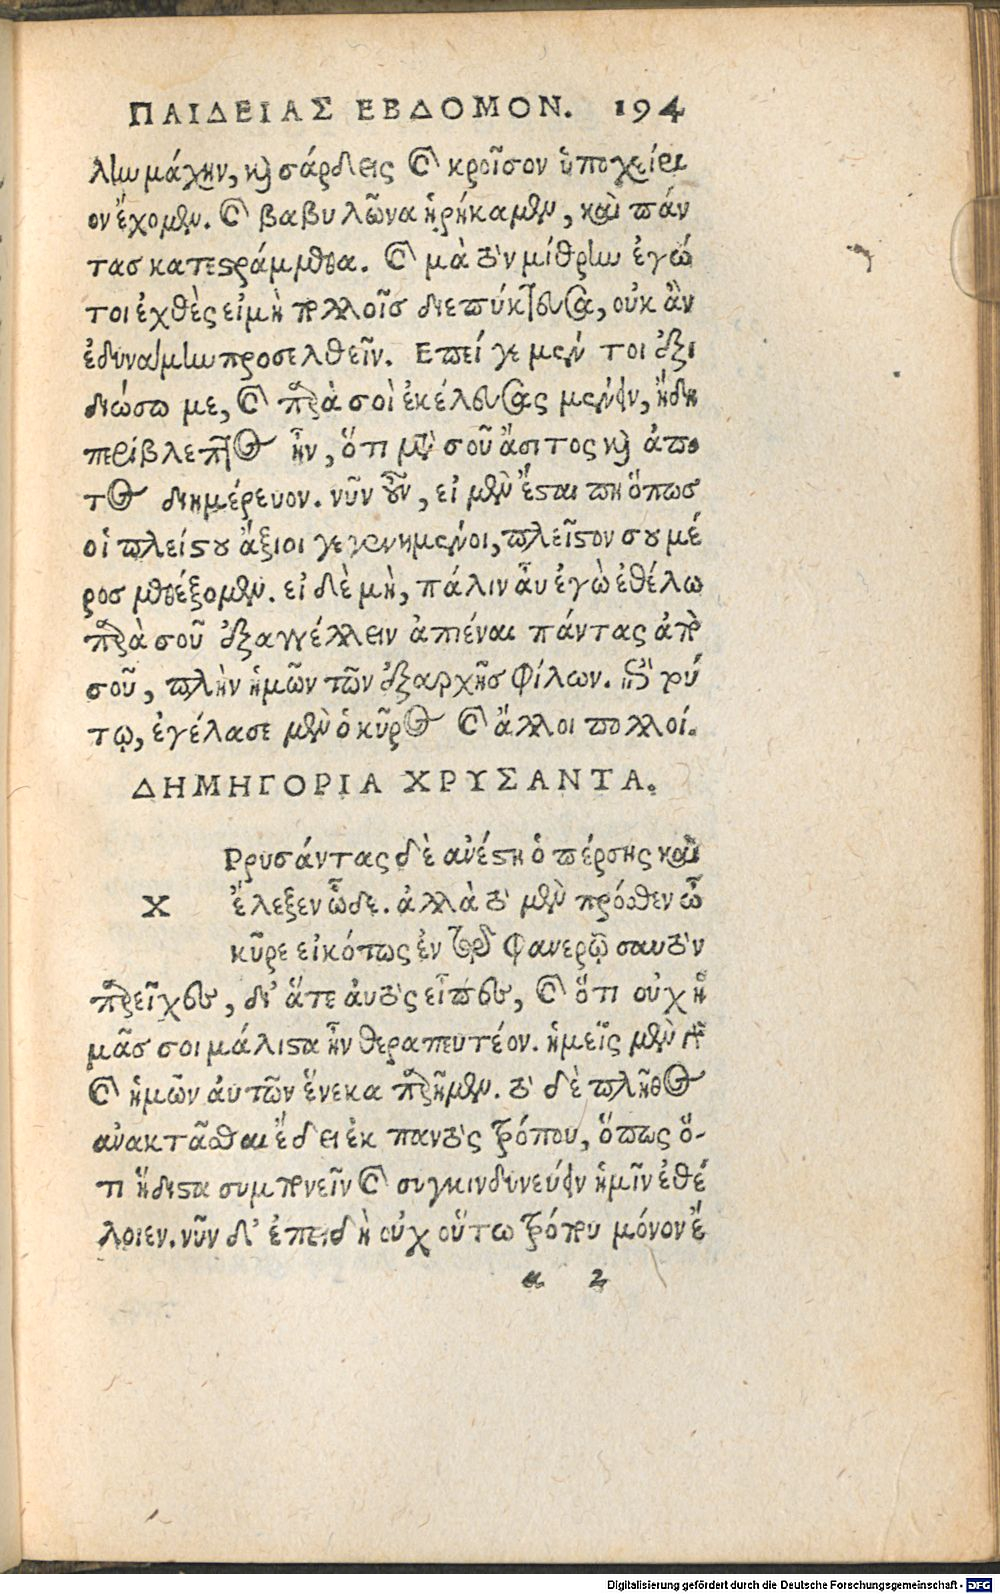 ΠΑΙΔΕΙΑΣ ΕΒΔΟΜΟΝ. 194
λην μάχην, καὶ σάρδεις καὶ κροῖσον ὑποχείρι
ον ἔχομεν. καὶ βαβυλῶνα ᾑρήκαμεν, καὶ πάν
τας κατεστράμμεθα. καὶ μὰ τὸν μίθρην ἐγώ
τοι ἐχθὲς εἰ μὴ πολλοῖς διεπύκτευσα, οὐκ ἂν
ἐδυνάμην προσελθεῖν. Επεί γε μέντοι ἐξε
διώσω με, καὶ παρὰ σοὶ ἐκέλευσας μένειν, ἤδη
περίβλεπτος ἦν, ὅτι μετὰ σοῦ ἄσιτος καὶ ἄπο
τος διημέρευον. νῦν οὖν, εἰ μὲν ἔσται πη ὅπως
οἱ πλείστου ἄξιοι γεγενημένοι, πλεῖστον σου μέ
ρος μεθέξομεν. εἰ δὲ μὴ, πάλιν αὖ ἐγὼ ἐθέλω
παρὰ σοῦ ἐξαγγέλλειν ἀπιέναι πάντας ἀπὸ
σοῦ, πλὴν ἡμῶν τῶν ἐξαρχῆς φίλων. ἐπὶ τού
τῳ, ἐγέλασε μὲν ὁ κῦρος καὶ ἄλλοι πολλοί.
ΔΗΜΗΓΟΡΙΑ ΧΡΥΣΑΝΤΑ.
Ρρυσάντας δὲ ἀνέστη ὁ πέρσης καὶ
χ ἔλεξεν ὧδε. ἀλλὰ τὸ μὲν πρόσθεν ὦ
κῦρε εἰκότως ἐν τῷ φανερῷ σαυτὸν
παρεῖχες, δι' ἅτε αὐτὸς εἶπες, καὶ ὅτι οὐχ ἡ
μᾶς σοι μάλιστα ἦν θεραπευτέον. ἡμεῖς μὲν γὰρ
καὶ ἡμῶν αὐτῶν ἕνεκα παρῆμεν. τὸ δὲ πλῆθος
ἀνακτᾶσθαι ἔδει ἐκ παντὸς τρόπου, ὅπως ὅ-
τι ἥδιστα συμπονεῖν καὶ συγκινδυνεύειν ἡμῖν ἐθέ
λοιεν. νῦν δ' ἐπειδὴ οὐχ οὕτω τρόπου μόνον ἔ
α 2
Digitalisierung gefördert durch die Deutsche Forschungsgemeinschaft - DFG